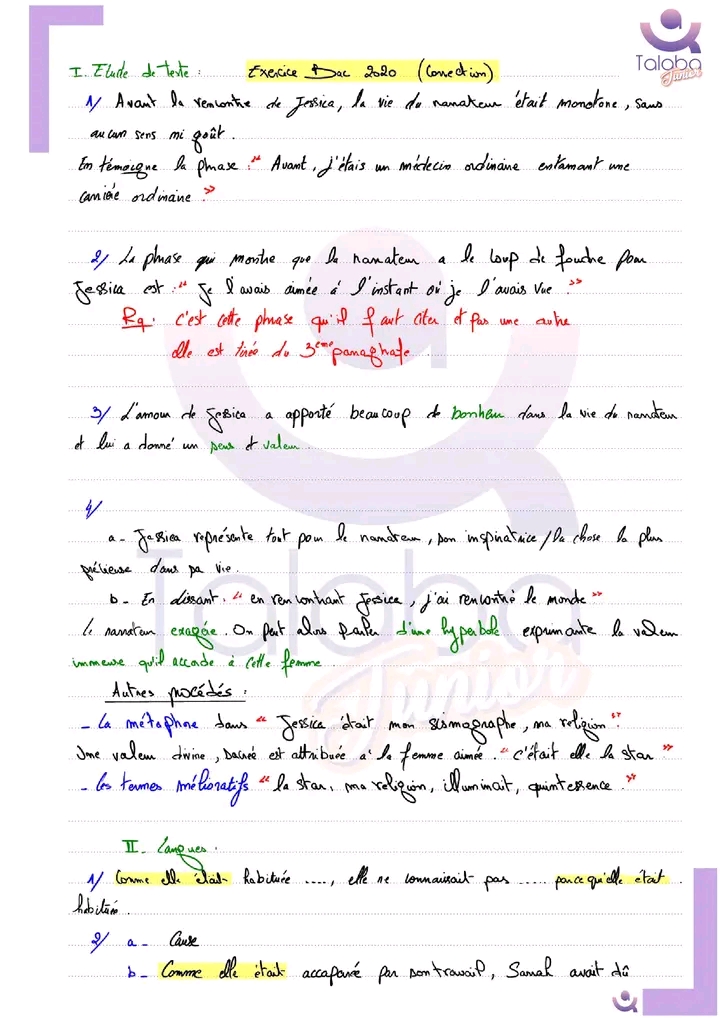 Taloba
Junior
I. Etude de texte : Exercice Bac 2020 (Correction)
1/ Avant la rencontre de Jessica, la vie du narrateur était monotone, sans
aucun sens ni goût.
En témoigne la phrase : " Avant, j'étais un médecin ordinaire entamant une
carrière ordinaire ."
2/ La phrase qui montre que le narrateur a le coup de foudre pour
Jessica est : " Je l'avais aimée à l'instant où je l'avais vue ."
Rq. c'est cette phrase qu'il faut citer et pas une autre
elle est tirée du 3ème paragrafe
3/ L'amour de Jessica a apporté beaucoup de bonheur dans la vie du narrateur
et lui a donné un sens et valeur.
4/
a - Jessica représente tout pour le narrateur, son inspiratrice / la chose la plus
précieuse dans sa vie.
b - En disant : " en rencontrant Jessica, j'ai rencontré le monde "
le narrateur exagère. On peut alors parler d'une hyperbole exprimante la valeur
immense qu'il accorde à cette femme.
Autres procédés :
- la métaphore dans " Jessica était mon sismographe, ma religion ".
Une valeur divine, sacrée est attribuée à la femme aimée. " c'était elle la star "
- les termes mélioratifs " la star, ma religion, illuminait, quintessence ."
Taloba
Junior
II - Langues .
1/ Comme elle était habituée ...., elle ne connaissait pas ..... parce qu'elle était
habituée
2/ a - Cause
b - Comme elle était accaparée par son travail, Sarah avait dû